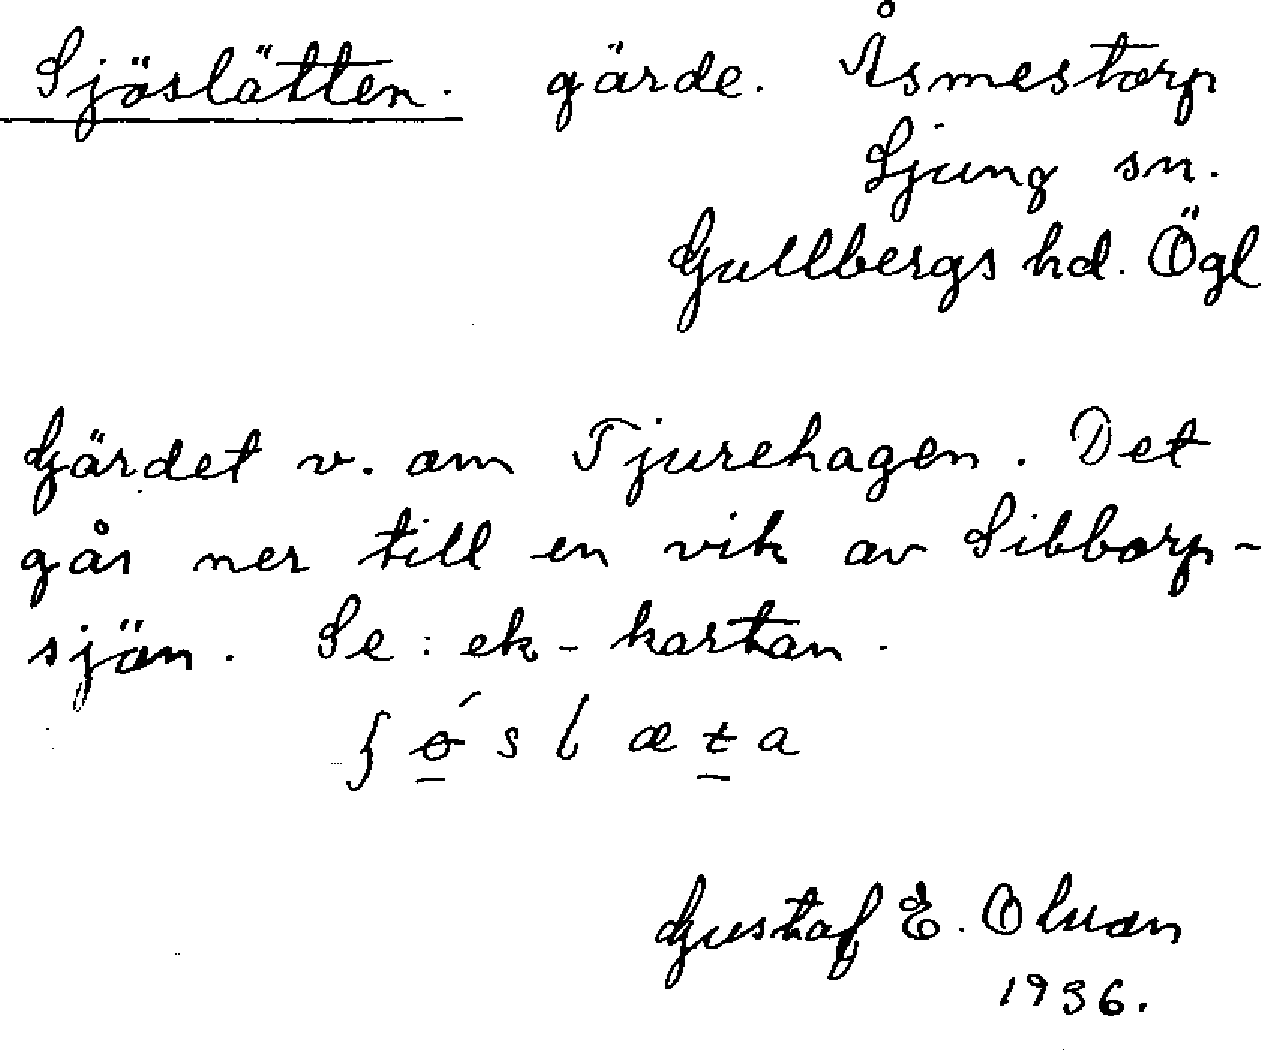 Sjöslätten. gärde. Åsmestorp
Ljung sn.
Gullbergs hd. Ögl
Gärdet v. om Tjurehagen. Det
går ner till en vik av Sibborp-
sjön. Se: ek-kartan.
ʃ ó̱ s l æ ṯ a
Gustaf E. Olsson
1936.